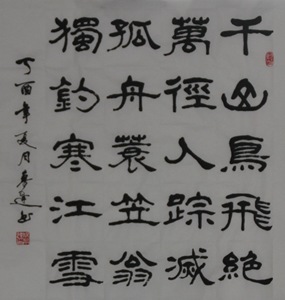 千山鳥飛絶
萬徑人踪滅
孤舟蓑笠翁
獨釣寒江雪
丁酉年夏月